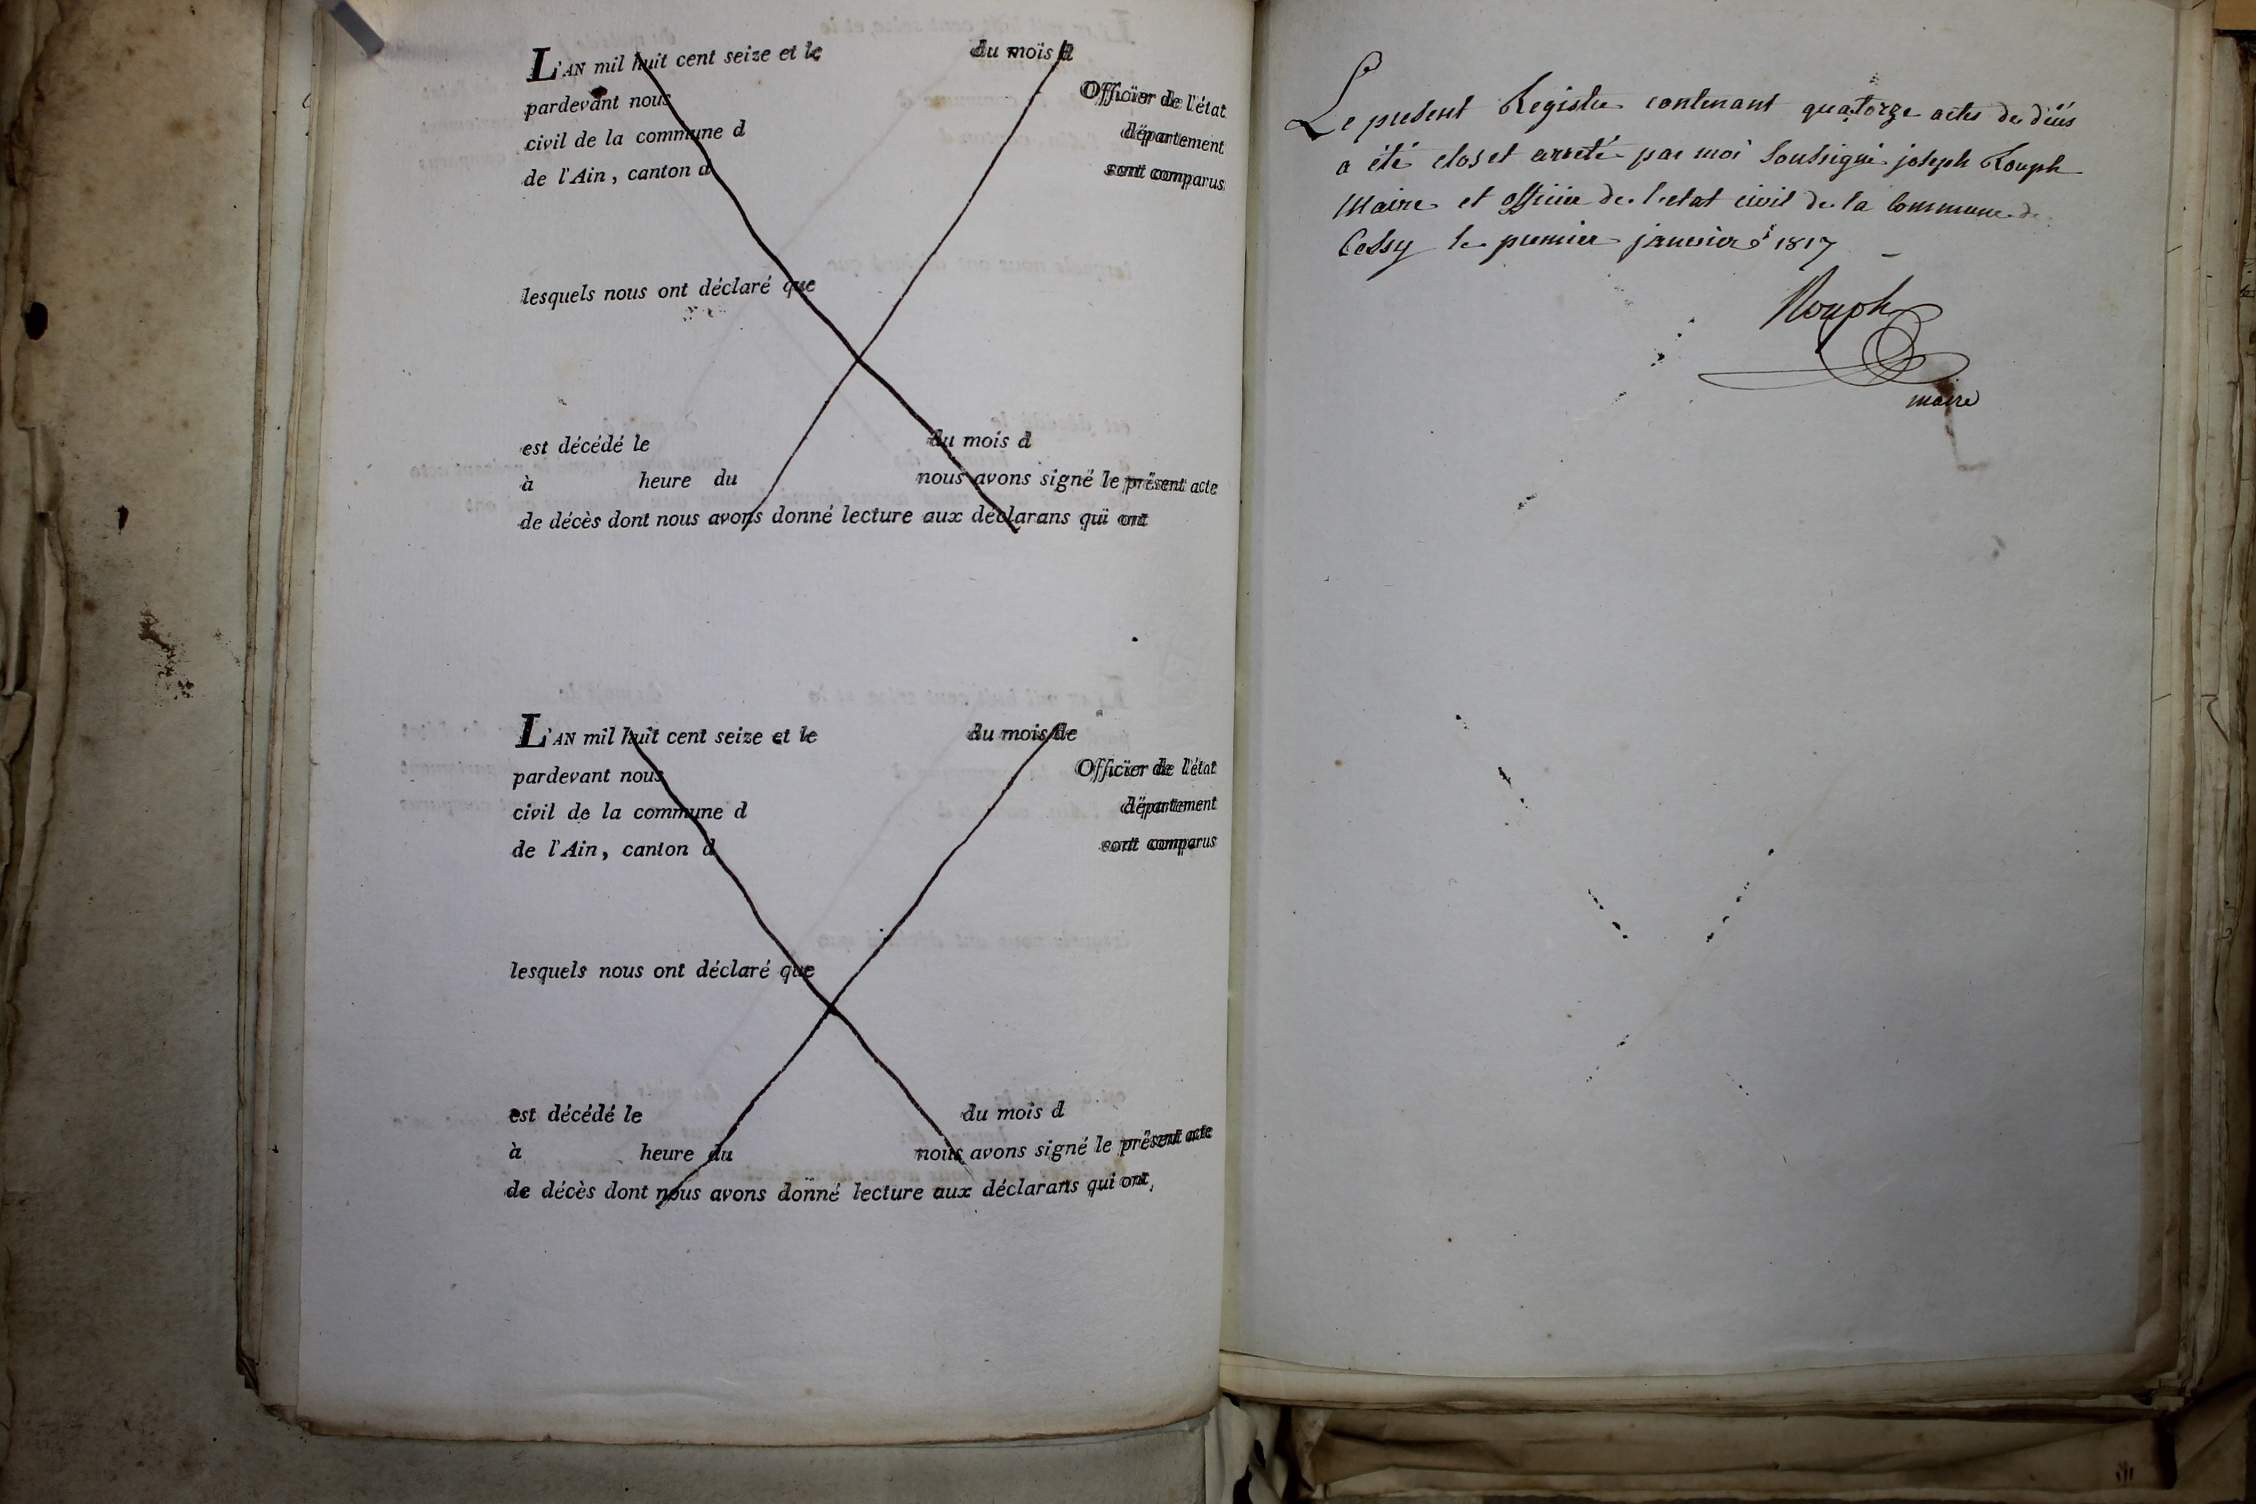 L'AN mil huit cent seize et le du mois d
pardevant nous Officier de l'état
civil de la commune d département
de l'Ain, canton d sont comparus
lesquels nous ont déclaré que
est décédé le du mois d
à heure du nous avons signé le présent acte
de décès dont nous avons donné lecture aux déclarans qui ont
L'AN mil huit cent seize et le du mois de
pardevant nous Officier de l'état
civil de la commune d département
de l'Ain, canton d sont comparus
lesquels nous ont déclaré que
est décédé le du mois d
à heure du nous avons signé le présent acte
de décès dont nous avons donné lecture aux déclarans qui ont,
Le present Registre contenant quatorze actes de déces
a été clos et arreté par moi Soussigné joseph Rouph
Maire et officier de l'etat civil de la Commune de
Cessy le premier janvier 1817
Rouph
maire